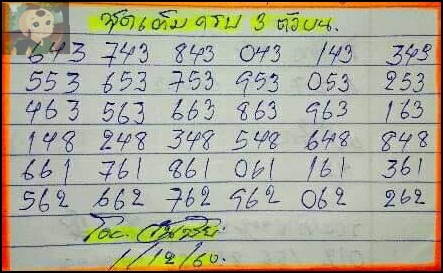 ชุดเต็ม ครบ 3 ตัวบน.
643 743 843 043 143 343
553 653 753 953 053 253
463 563 663 863 963 163
148 248 348 548 648 848
661 761 861 061 161 361
562 662 762 962 062 262
โดย.
1/12/60.